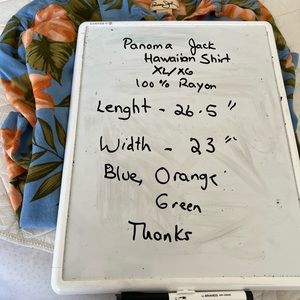 Panoma Jack
Hawaiian Shirt
XL/XG
100% Rayon
Lenght - 26.5"
Width - 23"
Blue, Orange
Green
Thanks